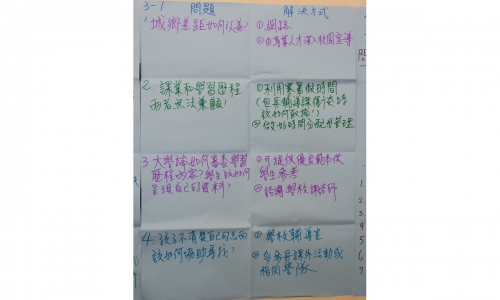 3-1 問題 解決方式
1. 城鄉差距如何改善?
① 網路
② 由專業人才深入校園宣導
2. 課業和學習歷程
兩者無法兼顧!
① 利用寒暑假時間
(但與輔導課衝突時
該如何取捨!)
② 做好時間分配與管理
3. 大學端如何審查學習
歷程內容?學生該如何
呈現自己的資料?
① 可提供優良範本供
學生參考
② 諮詢學校講師
4. 孩子不清楚自己的志向
該如何協助尋找?
① 學校輔導室
② 多參與課外活動或
相關營隊
1
2
3
4
5
6
7